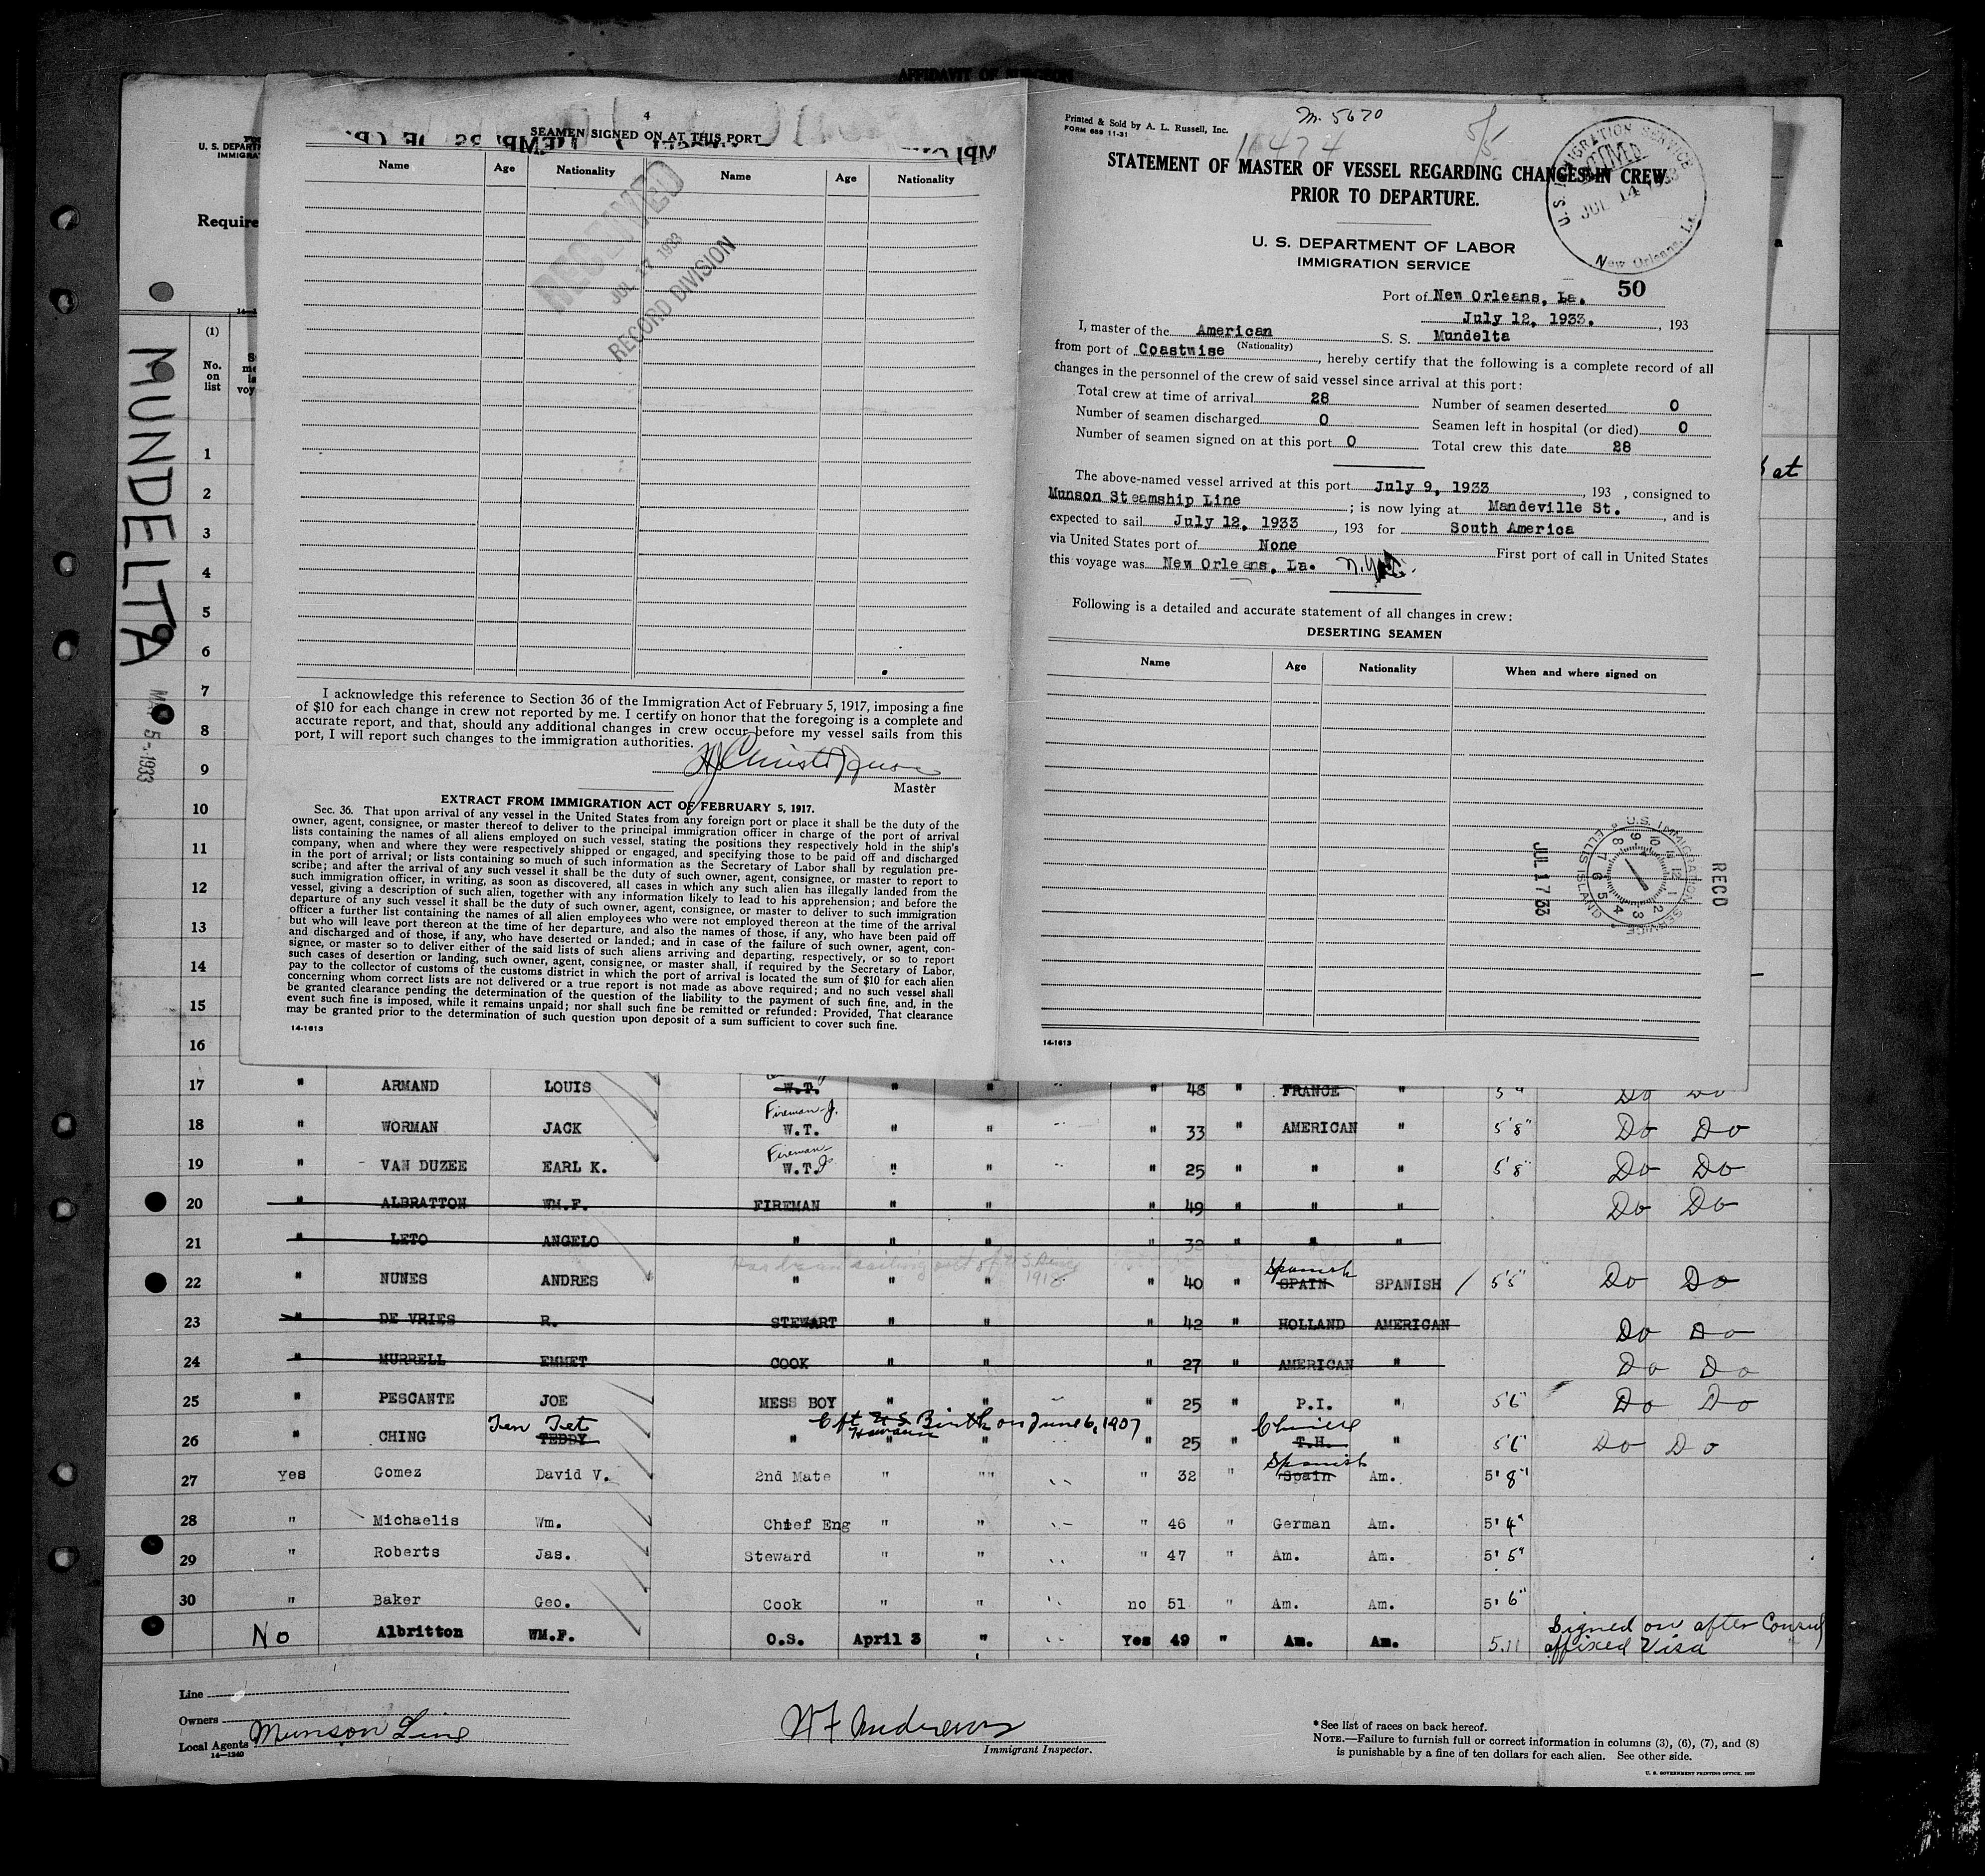 AFFIDAVIT OF SURGEON
U. S. DEPART
IMMIGRA
Require
(1)
No.
on
list
MUNDELTA
5-1933
1
2
3
4
5
6
7
8
9
10
11
12
13
14
15
16
4
SEAMEN SIGNED ON AT THIS PORT
Name Age Nationality Name Age Nationality
RECEIVED
JUL 17 1933
RECORD DIVISION
I acknowledge this reference to Section 36 of the Immigration Act of February 5, 1917, imposing a fine
of $10 for each change in crew not reported by me. I certify on honor that the foregoing is a complete and
accurate report, and that, should any additional changes in crew occur before my vessel sails from this
port, I will report such changes to the immigration authorities.
Master
EXTRACT FROM IMMIGRATION ACT OF FEBRUARY 5, 1917.
Sec. 36. That upon arrival of any vessel in the United States from any foreign port or place it shall be the duty of the
owner, agent, consignee, or master thereof to deliver to the principal immigration officer in charge of the port of arrival
lists containing the names of all aliens employed on such vessel, stating the positions they respectively hold in the ship's
company, when and where they were respectively shipped or engaged, and specifying those to be paid off and discharged
in the port of arrival; or lists containing so much of such information as the Secretary of Labor shall by regulation pre-
scribe; and after the arrival of any such vessel it shall be the duty of such owner, agent, consignee, or master to report to
such immigration officer, in writing, as soon as discovered, all cases in which any such alien has illegally landed from the
vessel, giving a description of such alien, together with any information likely to lead to his apprehension; and before the
departure of any such vessel it shall be the duty of such owner, agent, consignee, or master to deliver to such immigration
officer a further list containing the names of all alien employees who were not employed thereon at the time of the arrival
but who will leave port thereon at the time of her departure, and also the names of those, if any, who have been paid off
and discharged and of those, if any, who have deserted or landed; and in case of the failure of such owner, agent, con-
signee, or master so to deliver either of the said lists of such aliens arriving and departing, respectively, or so to report
such cases of desertion or landing, such owner, agent, consignee, or master shall, if required by the Secretary of Labor,
pay to the collector of customs of the customs district in which the port of arrival is located the sum of $10 for each alien
concerning whom correct lists are not delivered or a true report is not made as above required; and no such vessel shall
be granted clearance pending the determination of the question of the liability to the payment of such fine, and, in the
event such fine is imposed, while it remains unpaid; nor shall such fine be remitted or refunded: Provided, That clearance
may be granted prior to the determination of such question upon deposit of a sum sufficient to cover such fine.
14-1613
Printed & Sold by A. L. Russell, Inc.
FORM 689 11-31
M. 5670
5/5
STATEMENT OF MASTER OF VESSEL REGARDING CHANGES IN CREW
PRIOR TO DEPARTURE.
U. S. IMMIGRATION SERVICE
RECEIVED
JUL 14 1933
New Orleans, La.
U. S. DEPARTMENT OF LABOR
IMMIGRATION SERVICE
50
Port of New Orleans, La.
July 12, 1933. , 193
I, master of the American S. S. Mundelta
(Nationality)
from port of Coastwise , hereby certify that the following is a complete record of all
changes in the personnel of the crew of said vessel since arrival at this port:
Total crew at time of arrival 28 Number of seamen deserted 0
Number of seamen discharged 0 Seamen left in hospital (or died) 0
Number of seamen signed on at this port 0 Total crew this date 28
The above-named vessel arrived at this port July 9, 1933 , 193 , consigned to
Munson Steamship Line ; is now lying at Mandeville St. , and is
expected to sail July 12, 1933 , 193 for South America
via United States port of None First port of call in United States
this voyage was New Orleans, La.
Following is a detailed and accurate statement of all changes in crew:
DESERTING SEAMEN
Name Age Nationality When and where signed on
RECD
U.S. IMMIGRATION SERVICE
ELLIS ISLAND
JUL 17 33
14-1613
at
17 " ARMAND LOUIS W.T. " " " 48 " FRANCE " Do Do
Fireman
18 " WORMAN JACK W.T. " " " 33 " AMERICAN " 5'8" Do Do
Fireman
19 " VAN DUZEE EARL K. W.T. " " " 25 " " " 5'8" Do Do
20 " ALBRATTON WM.F. FIREMAN " " " 49 " " " Do Do
21 " LETO ANGELO " " " " 32 " " "
Spanish
22 " NUNES ANDRES " " " " 40 " SPAIN SPANISH 5'5" Do Do
23 " DE VRIES R. STEWART " " " 42 " HOLLAND AMERICAN Do Do
24 " MURRELL EMMET COOK " " " 27 " AMERICAN " Do Do
25 " PESCANTE JOE MESS BOY " " " 25 " P.I. " 5'6" Do Do
Cft U S Birth on June 6, 1907
26 " CHING TEDDY " " " " 25 " T.H. " 5'6" Do Do
Spanish
27 Yes Gomez David V. 2nd Mate " "" " 32 " Spain Am. 5'8"
28 " Michaelis Wm. Chief Eng " " " 46 " German Am. 5'4"
29 " Roberts Jas. Steward " " " 47 " Am. Am. 5'5"
30 " Baker Geo. Cook " " no 51 " Am. Am. 5'6"
No Albritton WM.F. O.S. April 3 " Yes 49 " Am. Am. 5.11 Signed on after Consul
affixed Visa
Line
Owners
Local Agents Munson Line
14-1240
W F Andrews
Immigrant Inspector.
* See list of races on back hereof.
NOTE.—Failure to furnish full or correct information in columns (3), (6), (7), and (8)
is punishable by a fine of ten dollars for each alien. See other side.
U. S. GOVERNMENT PRINTING OFFICE